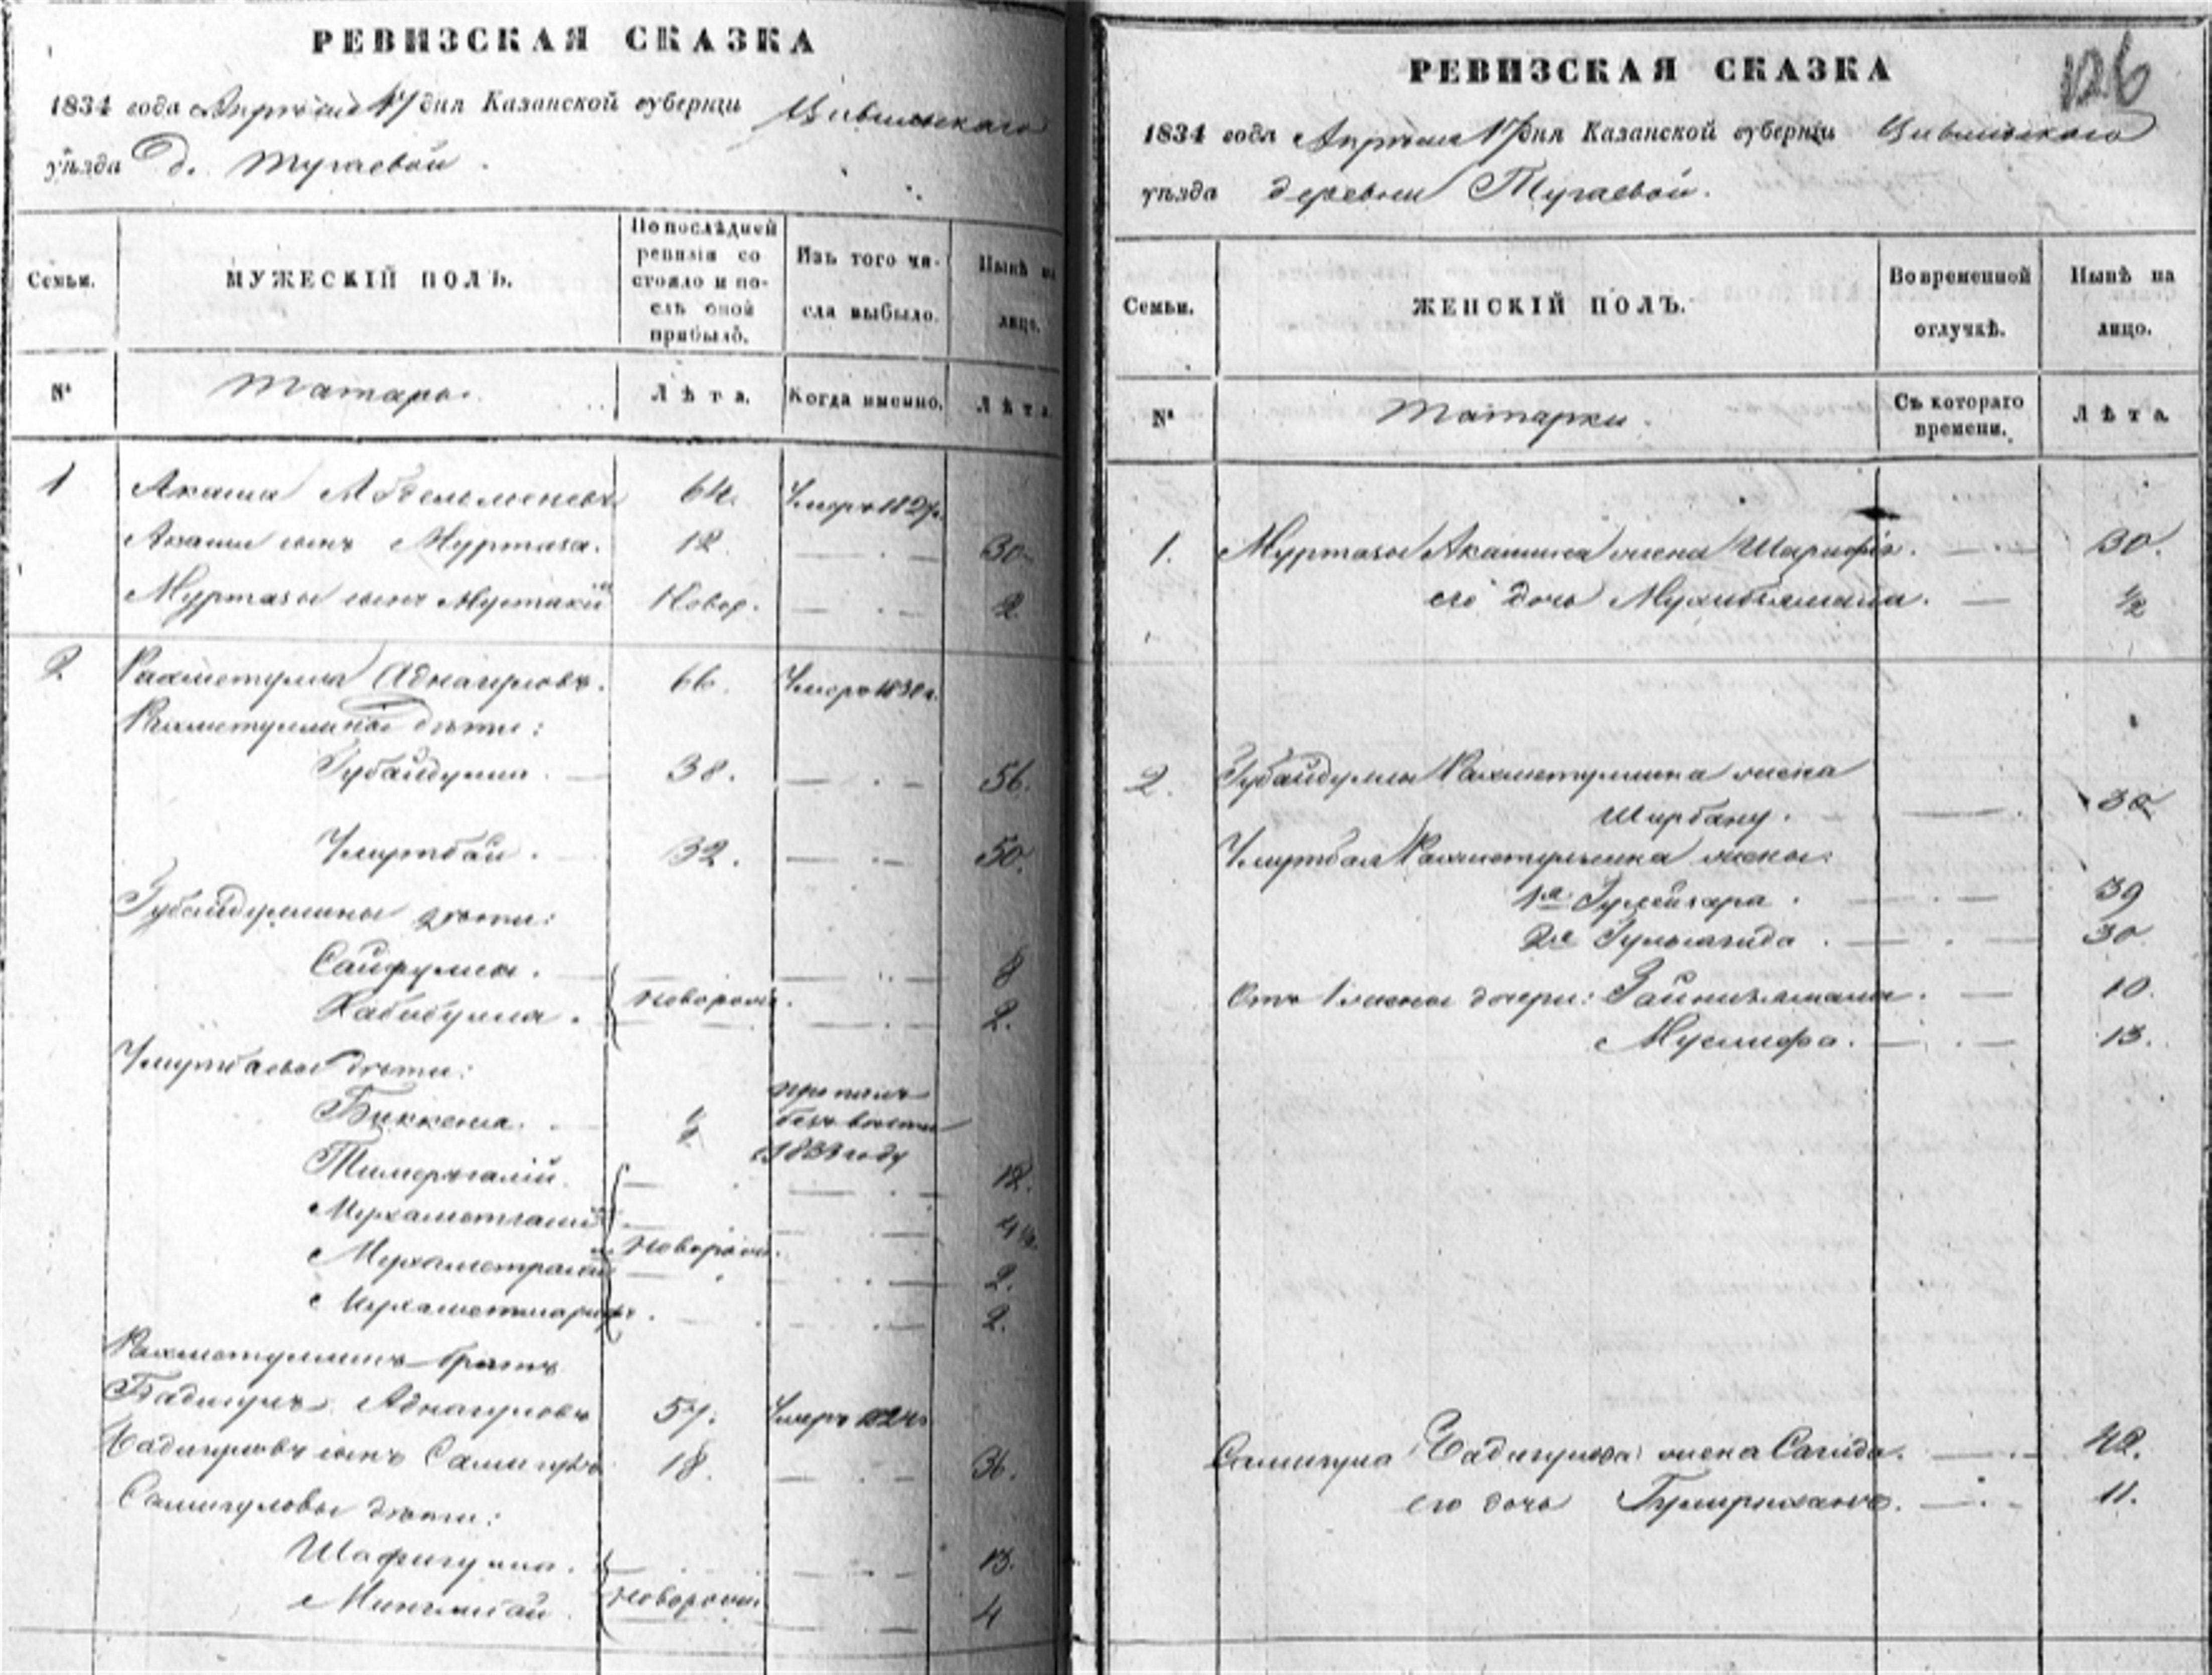 РЕВИЗСКАЯ СКАЗКА
1834 года Апрѣля 17 дня Казанской губерніи Цивильскаго
уѣзда д. Тугаевой.
Семьи.
МУЖЕСКІЙ ПОЛЪ.
По послѣдней
ревизіи со
стояло и по-
слѣ оной
прибыло.
Изъ того чи-
сла выбыло.
Нынѣ на
лицо.
№
Татары.
Лѣта.
Когда именно.
Лѣта.
1 Акаша 64. Умеръ 1827г.
Акаши сынъ Муртаза. 12. 30.
Муртазы сынъ Новор. 2
2 Рахметулла Аднагуловъ. 66. Умеръ
Рахметуллины дѣти:
Губайдулла. 38. 56.
Умутбай. 32. 50.
Губайдуллины дѣти:
Сайфулла. 8
Новорожд.
Хабибулла. 2.
Умутбаевы дѣти:
Биккеня. 1/2 пропалъ
безъ вѣсти
1833 году
Тимергалій. 12.
Мухаметгалій 4½
Новорожд.
2.
Мухаметшарифъ. 2.
Рахметуллинъ братъ
Бадигулъ Аднагуловъ 57. Умеръ
Бадигуловъ сынъ Самигулъ 18. 36.
Самигуловы дѣти:
Шафигулла. 13.
Новорожд.
4
126
РЕВИЗСКАЯ СКАЗКА
1834 года Апрѣля 17 дня Казанской губерніи Цивильскаго
уѣзда деревни Тугаевой.
Семьи.
ЖЕНСКІЙ ПОЛЪ.
Во временной
отлучкѣ.
Нынѣ на
лицо.
№
Татарки.
Съ котораго
времени.
Лѣта.
1. Муртазы Акашина жена 30.
его дочь 1/2
2. Губайдуллы Рахметуллина жена
Ширбану.
Умутбая Рахметуллина жены:
1я 39
2я 30
Отъ 1 жены дочери: 10.
13.
Самигула Бадигулова жена Сагида. 42.
его дочь 11.